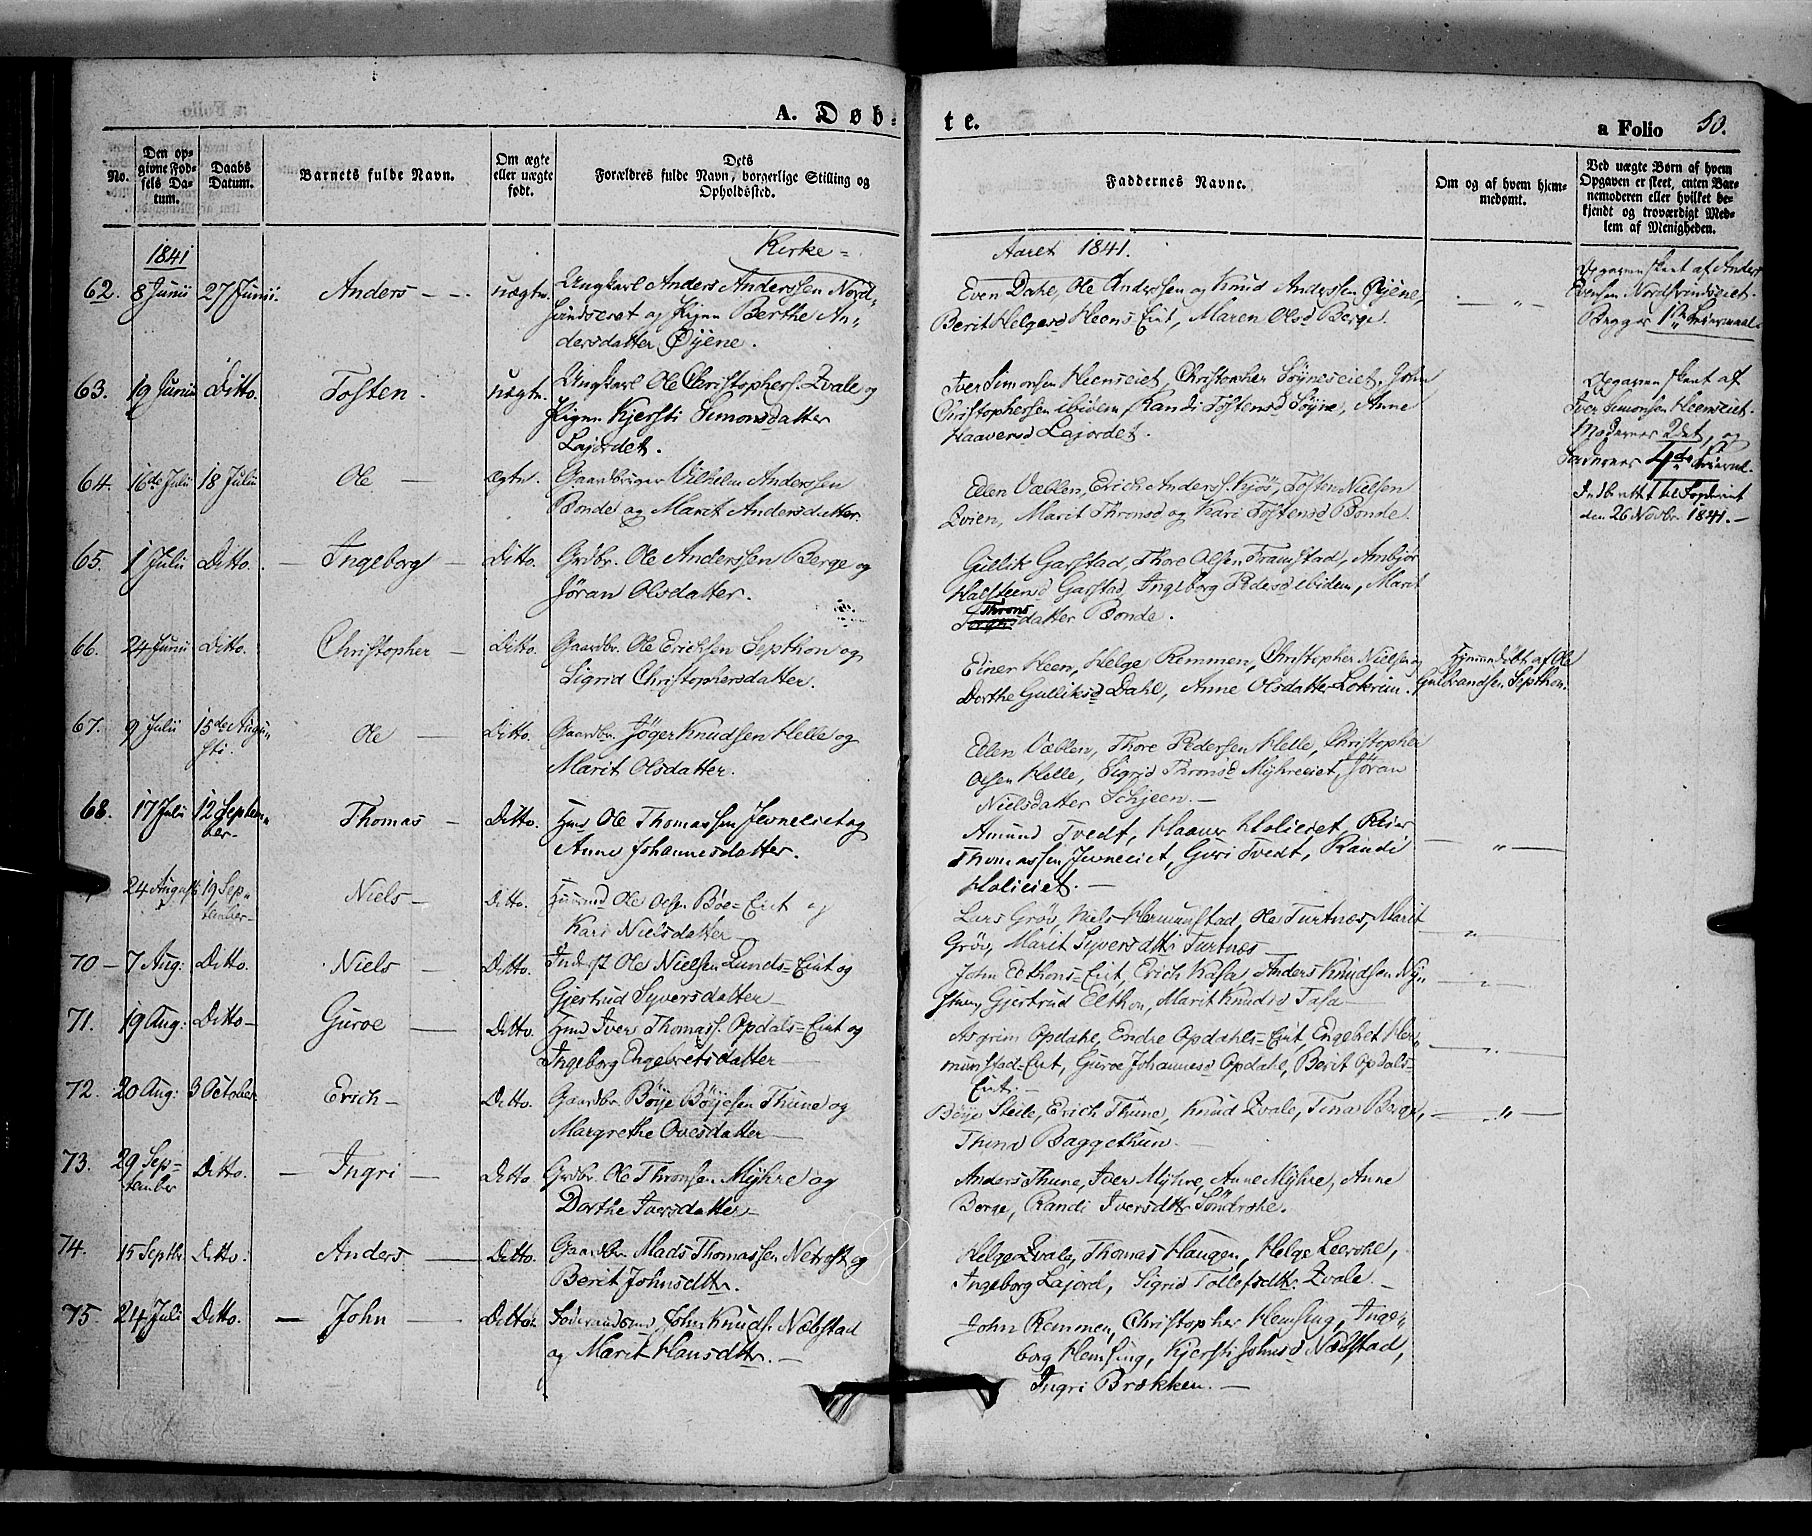 A. Døb=
te.
a Folio 50.
No.
Den opgivne Fødsels Datum.
Daabs Datum.
Barnets fulde Navn.
Om ægte eller uægte født.
Dets Forældres fulde Navn, borgerlige Stilling og Opholdssted.
Faddernes Navne.
Om og af hvem hjemmedømt.
Ved uægte Børn af hvem Opgaven er skeet, enten Barnemoderen eller hvilket bekjendt og troværdigt Medlem af Menigheden.
1841
Kirke=
Aaret 1841.
62. 8 Junii 27 Junii. Anders - uægte.
Ungkarl Anders Anderssen Nord=
og Pigen Berthe An=
dersdatter Øyene.
Even Dahl, Ole Anderssen og Knud Anderssen Øyene,
Berit Helgesd Heens Eiet, Maren Olsd Berge.
Opgaven skeet af Anders
Evensen
63. 19 Junii Ditto. Tosten. uægte.
Ungkarl Ole Christophers. Qvale og
Pigen Kjersti Simonsdatter
Lajordet.
Iver Simonsen Heenseiet, Christopher Søyneseiet, John
Christophersen ibidem, Randi Tostensd Søyne, Anne
Haaversd Lajordet.
Opgaven skeet af
Iver Simonsen Heenseiet.
Moderens 2det, og
Faderens 4de
Indberettet til Fogderiet
den 26 Novbr. 1841.-
64. 16de Julii 18 Julii Ole - ægte.
Gaardbruger Vilhelm Anderssen
Bonde og Marit Andersdatter.
Eden Væblen, Erich Anderss. Kjøs, Tosten Nielsen
Qvien, Marit Thronsd og Kari Tostensd Bonde.
65. 1 Julii Ditto. - Ingeborg - Ditto.
Grdbr. Ole Anderssen Berge og
Jøran Olsdatter.
Gullik Garstad, Thore Olsen Framstad, Ambjør
Halsteensd Garstad, Ingeborg Pedersd ibidem, Marit
Throns
datter Bonde.
66. 24 Junii Ditto. Christopher - Ditto.
Gaardbr. Ole Erichsen Septhon og
Sigrid Christophersdatter.
Einer Heen, Helge Remmen, Christopher Nielsen og
Dorthe Gulliksd Dahl, Anne Olsdatter Lokrim.
Hjemmedøbt af Ole
Gulbrandsen Septhon.
67. 9 Julii 15de Augu=
sti. Ole - Ditto.
Gaardbr. Jøger Knudsen Helle og
Marit Olsdatter.
Eden Væblen, Thore Pedersen Helle, Christopher
Olsen Helle, Sigrid Thronsd Myhreeiet, Jøran
Nielsdatter Schjeen.-
68. 17 Julii 12 Septem=
ber- Thomas - Ditto.
Hmd Ole Thomassen Jevneeiet og
Anne Johannesdatter.
Amund Tvedt, Haavr Holieiet, Reier
Thomassen Jevneeiet, Guri Tvedt, Randi
Holieiet.-
24 August 19 Sep=
tember- Niels- Ditto.
Huusmd Ole Olsen Bøe=Eiet og
Kari Nielsdatter
Lars Grøv, Niels Hermunstad, Ole Turtnes, Marit
Grøv, Marit Syversdtr Turtnes
70- 7 Aug: Ditto. Niels - Ditto.
Inderst Ole Nielsen Lunds=Eiet og
Gjertrud Syversdatter-
John Elthons=Eiet, Erich Kasa, Anders Knudsen Ny=
stuen, Gjertrud Elthon, Marit Knudsd Tasa-
71. 19 Aug: Ditto- Guroe - Ditto.
Hmd Iver Thomass. Opdals=Eiet og
Ingeborg Engebretsdatter-
Asgrim Opdahl, Endre Opdahls=Eiet, Engebret Her=
munstad=Eiet, Guroe Johannesd Opdahl, Berit Opdals=
Eiet.-
72. 20 Aug: 3 October Erich- Ditto.
Gaardbr. Bøye Bøyesen Thune og
Margrethe Ovesdatter-
Bøye Steile, Erich Thune, Knud Qvale, Tina Berge,
Thina Baggethun.-
73. 29 Sep=
tember Ditto. - Ingri - Ditto.
Grdbr. Ole Thronsen Myhre og
Dorthe Iversdatter-
Anders Thune, Iver Myhre, Anne Myhre, Anne
Berge, Randi Iversdtr Søndrohe.
74. 15 Septbr. Ditto. Anders - Ditto.
Gaardbr. Mads Thomassen og
Berit Johnsdtr.
Helge Qvale, Thomas Haugen, Helge
Ingeborg Lajord, Sigrid Tollefsdtr. Qvale.-
75. 24 Juli Ditto. - John - Ditto.
John Knuds. Nœbstad
og Marit Hansdtr.-
John Remmen, Christopher Hemsing, Inge=
borg Hemsing, Kjersti Johnsd Nœbstad,
Ingri Brækken.-